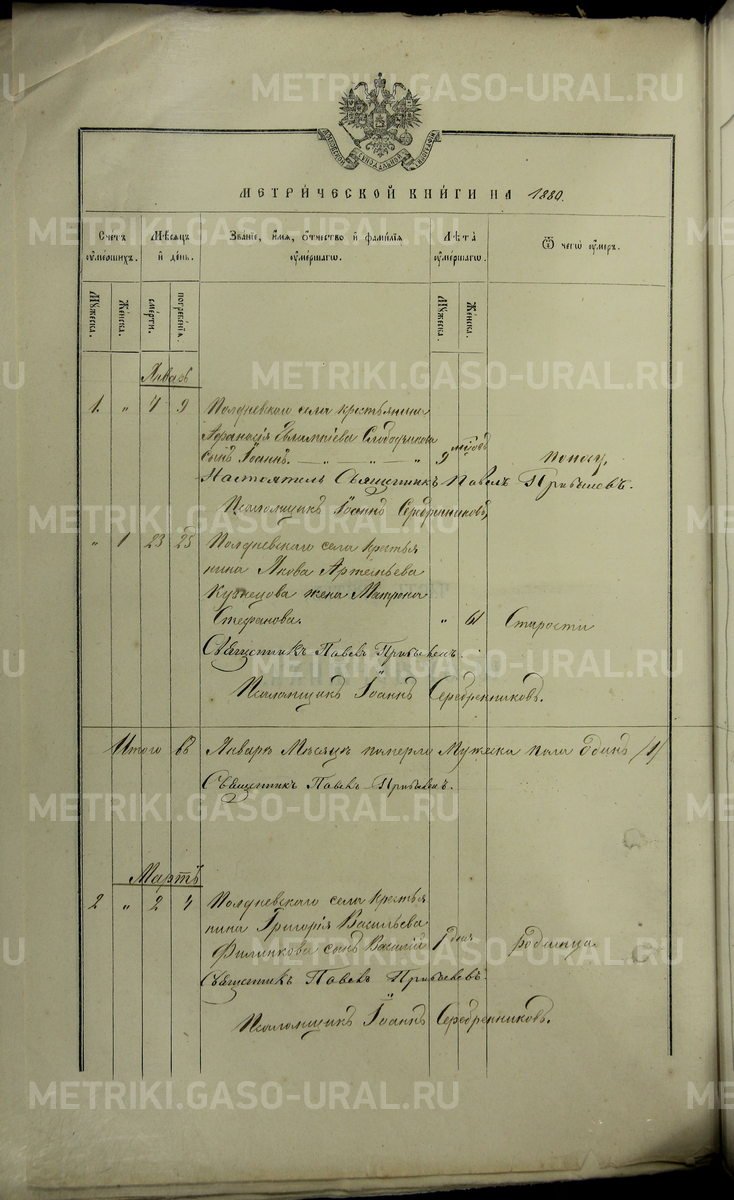 METRIKI.GASO-URAL.RU
МЕТРИЧЕСКОЙ КНИГИ НА 1880.
Счетъ умершихъ.
Мѣсяцъ и день.
Званіе, имя, отчество и фамилія умершаго.
Лѣта умершаго.
Ѿ чего умеръ.
Мужеска.
Женска.
смерти.
погребенія.
Мужеска.
Женска.
Январь
1. " 4 9 Полдневскаго села крестьянина
Афанасія Евлампіева Слободчикова
сынъ Іоаннъ. 9 мѣсцовъ поносу.
Настоятель Священникъ Павелъ Прибылевъ.
Псаломщикъ Іоаннъ Серебренниковъ
" 1 23 25 Полдневскаго села крестья
нина Якова Артемьева
Кузнецова жена Матрона
Стефанова. " 61 Старости
Священникъ Павелъ Прибылевъ.
Псаломщикъ Іоаннъ Серебренниковъ.
Итого въ Январѣ Мѣсяцѣ померло Мужеска пола Одинъ /1/
Священникъ Павелъ Прибылевъ.
Мартъ
2 " 2 4 Полдневскаго села крестья
нина Григорія Васильева
Филинкова сынъ Василій 1 дня родимца.
Священникъ Павелъ Прибылевъ.
Псаломщикъ Іоаннъ Серебренниковъ.